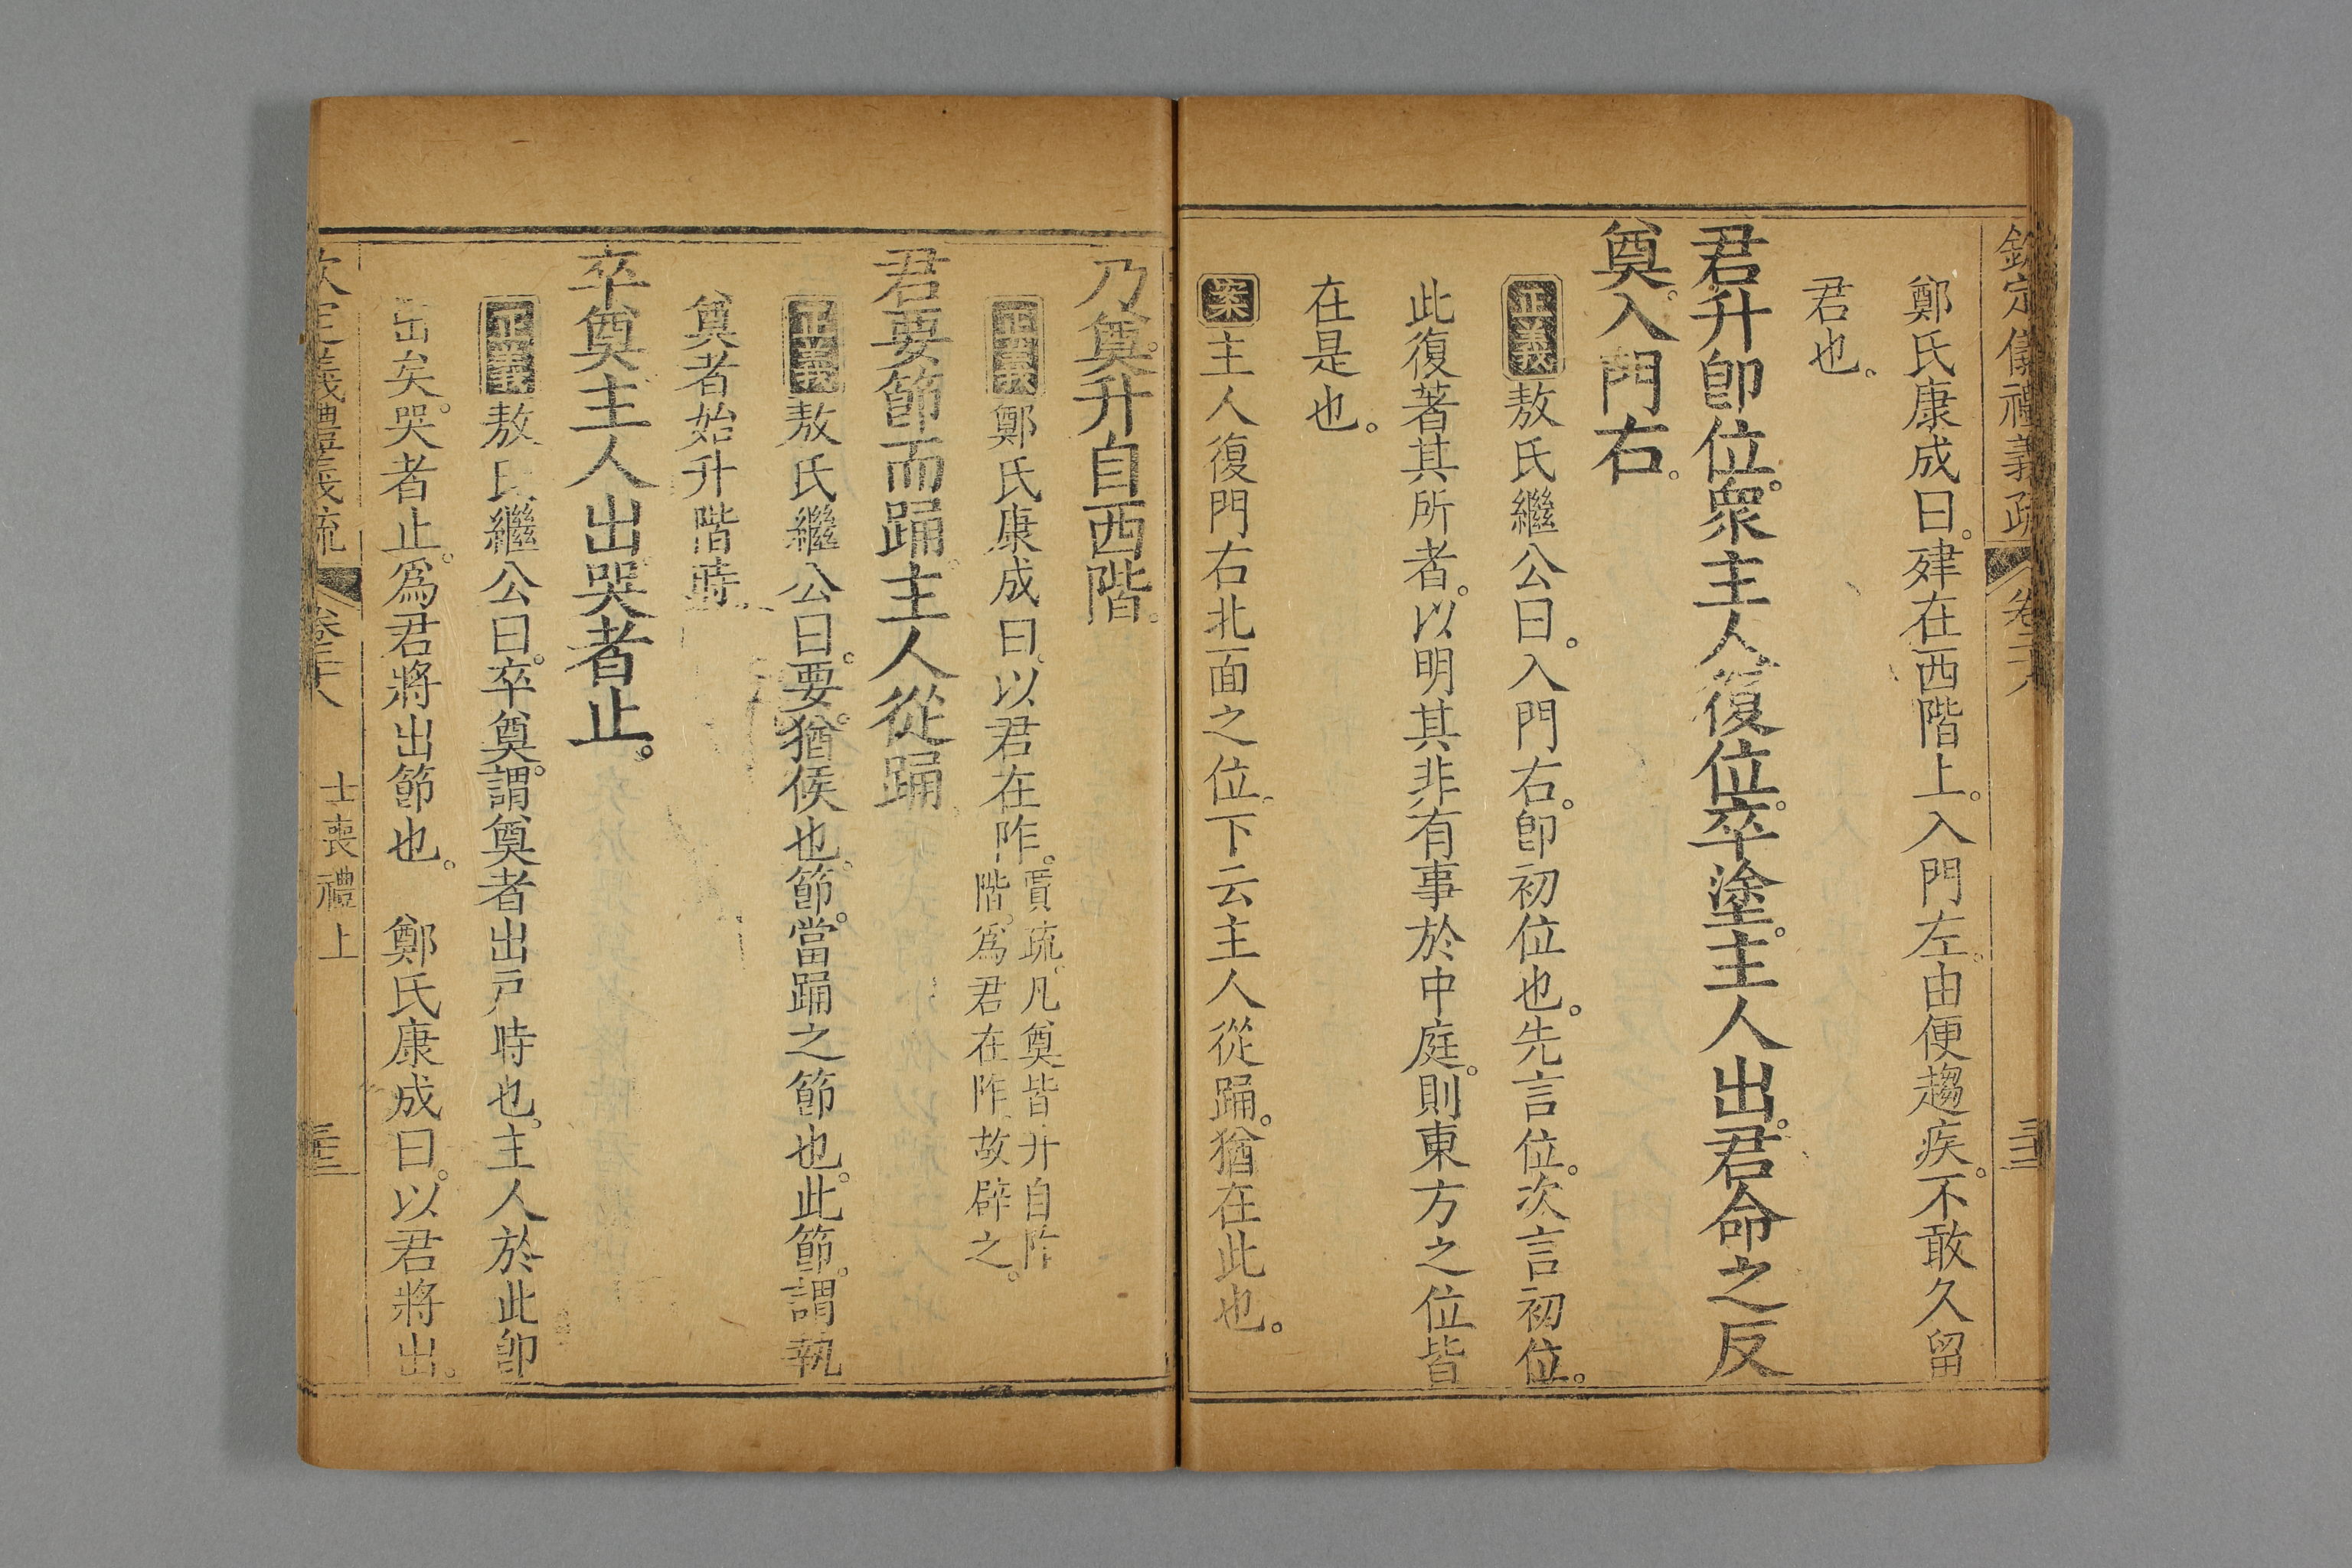 欽定儀禮義疏 卷二十八
鄭氏康成曰。肂在西階上。入門左。由便趨疾。不敢久留
君也。
君升卽位。衆主人復位。卒塗。主人出。君命之反
奠。入門右。
正義 敖氏繼公曰。入門右。卽初位也。先言位。次言初位。
此復著其所者。以明其非有事於中庭。則東方之位皆
在是也。
案 主人復門右北面之位。下云主人從踊。猶在此也。
乃奠。升自西階。
正義 鄭氏康成曰。以君在阼。賈疏。凡奠皆升自阼
階。爲君在阼。故辟之。
君要節而踊。主人從踊。
正義 敖氏繼公曰。要。猶候也。節。當踊之節也。此節。謂執
奠者始升階時
卒奠。主人出。哭者止。
正義 敖氏繼公曰。卒奠。謂奠者出戶時也。主人於此卽
出矣。哭者止。爲君將出節也。 鄭氏康成曰。以君將出。
欽定儀禮義疏 卷二十八 士喪禮上